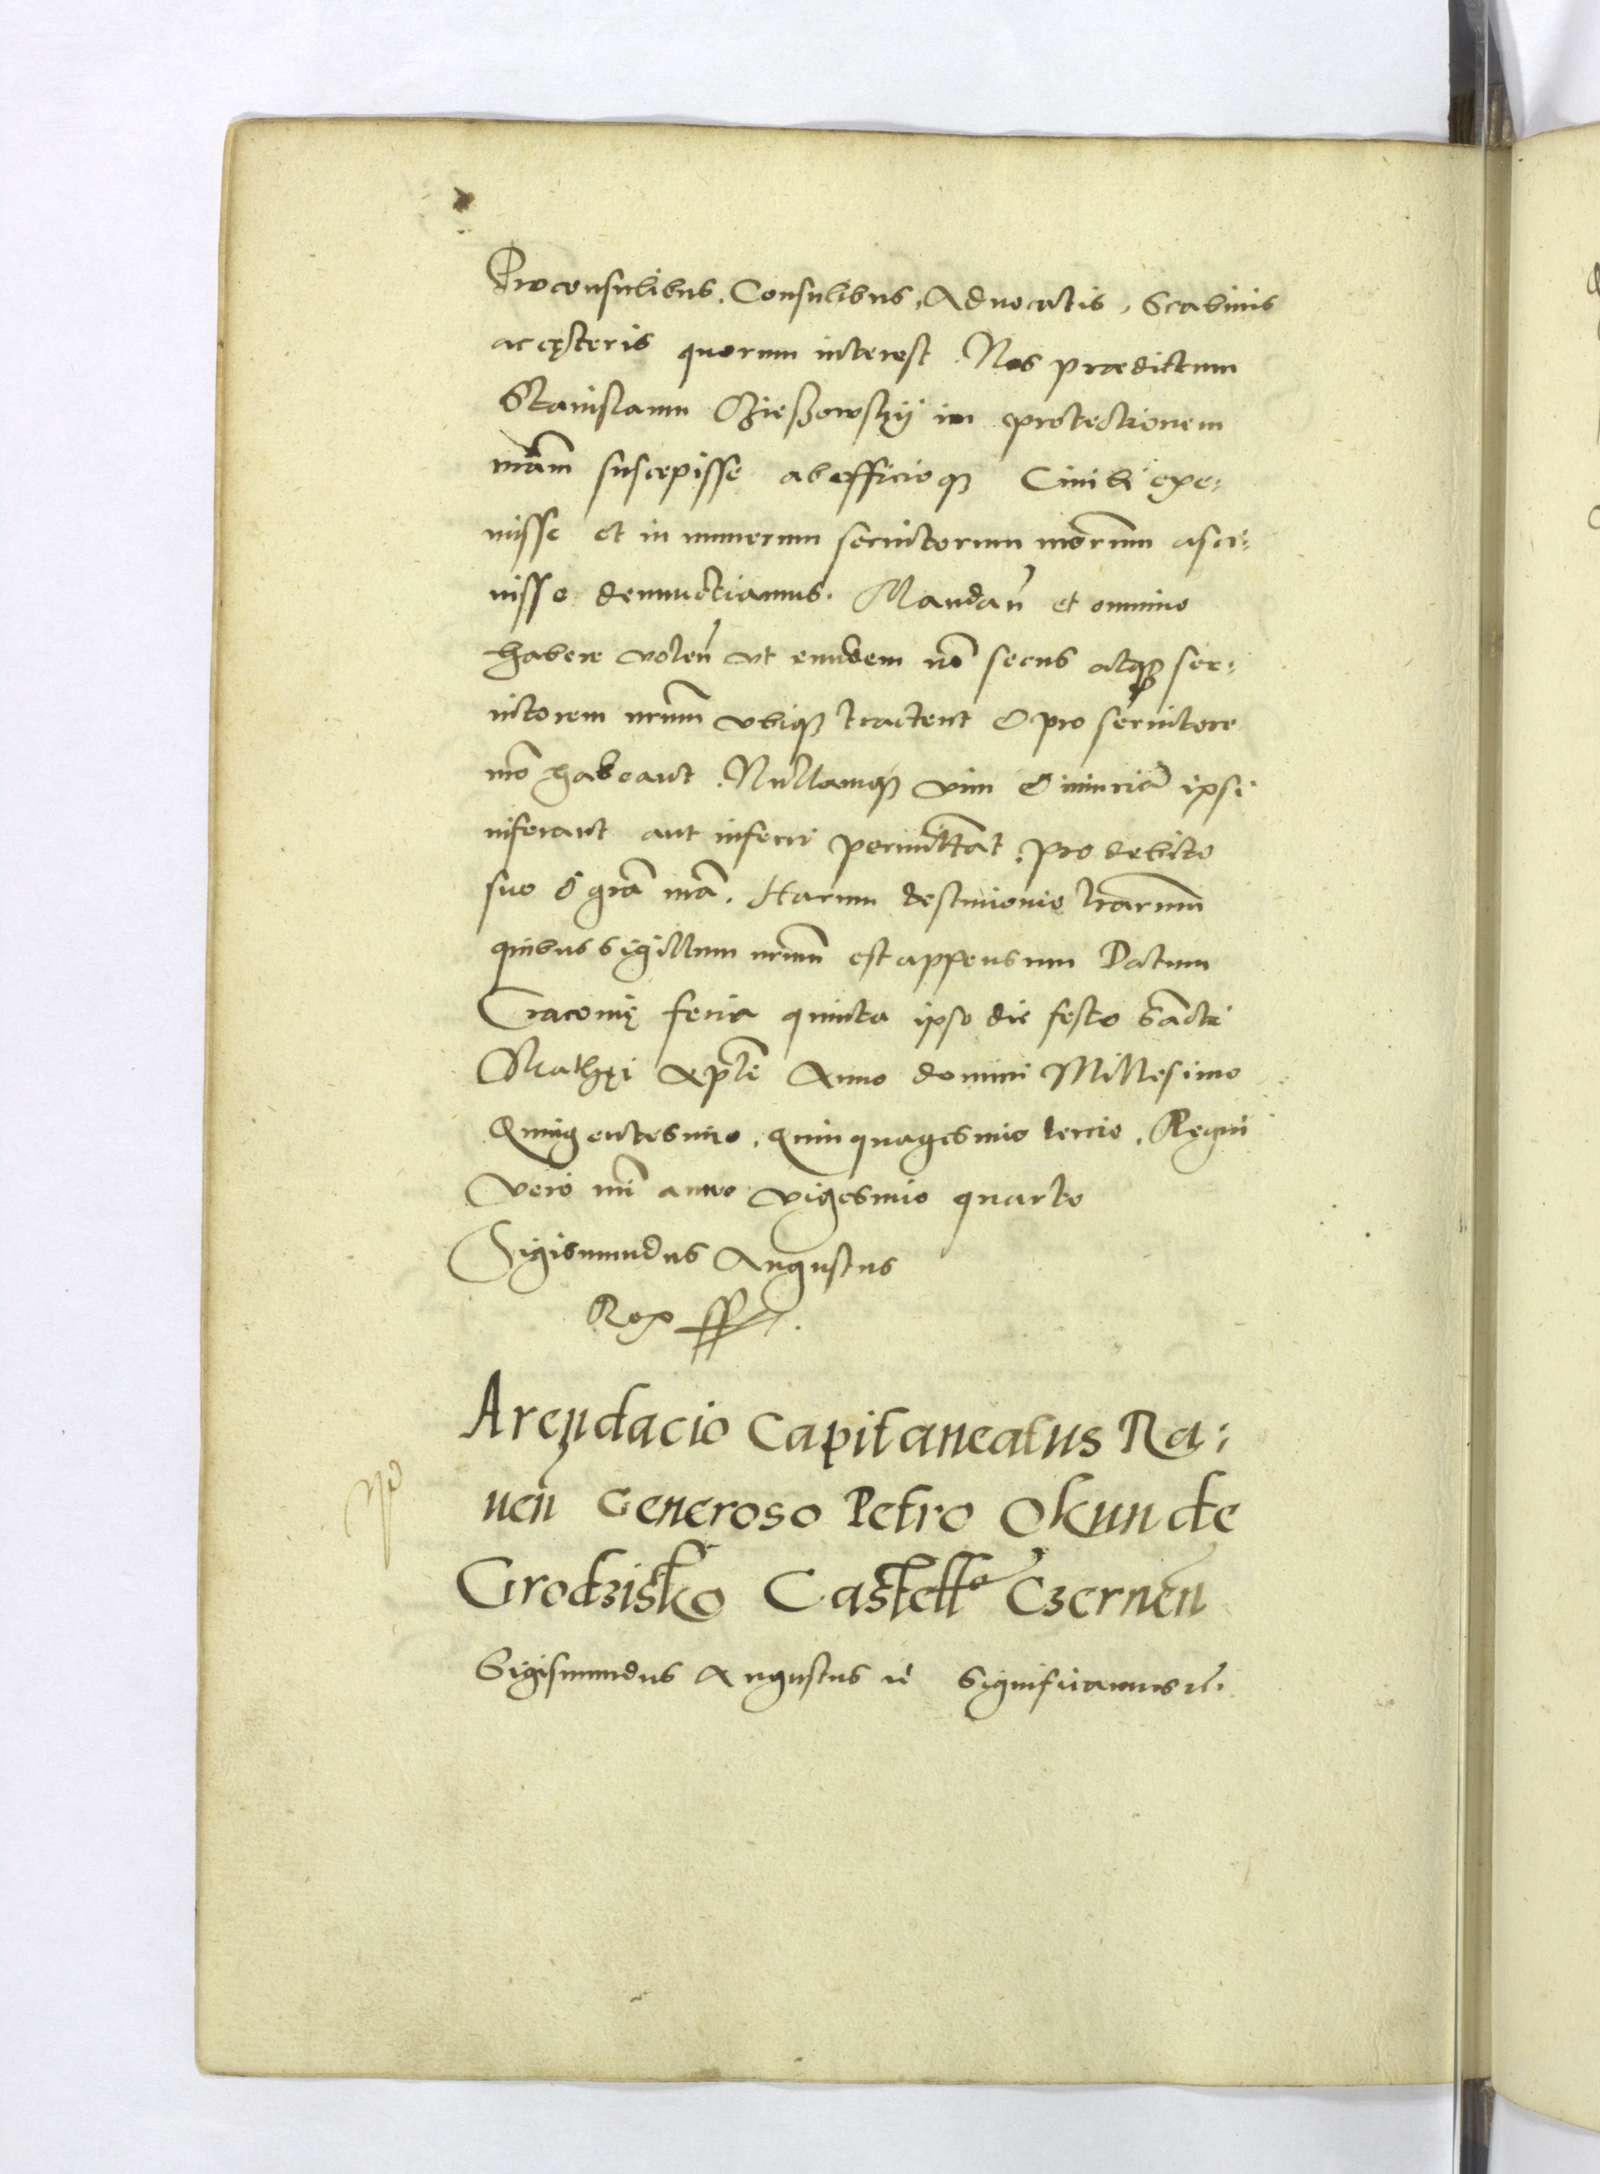 Proconsulibus, Consulibus, Aduocatis, Scabinis
ac cęteris quorum interest. Nos prædictum
Stanislaum in protectionem
nr̃am suscepisse ab officioq; Ciuili exe:
misse et in numerum seruitorum nr̃orum asci:
uisse denunctiamus. Mandañ et omnino
habere voleñ vt eundem nõ secus atq; ser:
uitorem nr̃um vbiq; tractent & pro seruitore
nr̃o habeant. Nullamq; vim & iniuriã ipsi
inferant aut inferri permittãt, pro debito
suo & grã nr̃a. Harum testimonio lr̃arum
quibus sigillum nr̃um est appensum Datum
Cracouię feria quinta ipso die festo Sãcti
Mathęi Apl̃i Anno domini Millesimo
Quingentesimo, quinquagesimo tercio, Regni
vero nr̃i anno vigesimo quarto
Sigismundus Augustus
Rex
Arendacio Capitaneatus Ra:
ueñ Generoso Petro Okun de
Grodzisko Castellº Czerneñ
Sigismundus Augustus rc̃ Significamus rc̃.